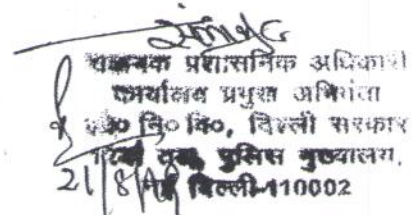 प्रशासनिक अधिकारी
कार्यालय प्रमुख अभियंता
नि० वि०, दिल्ली सरकार
तल, पुलिस मुख्यालय,
21/8/
दिल्ली-110002